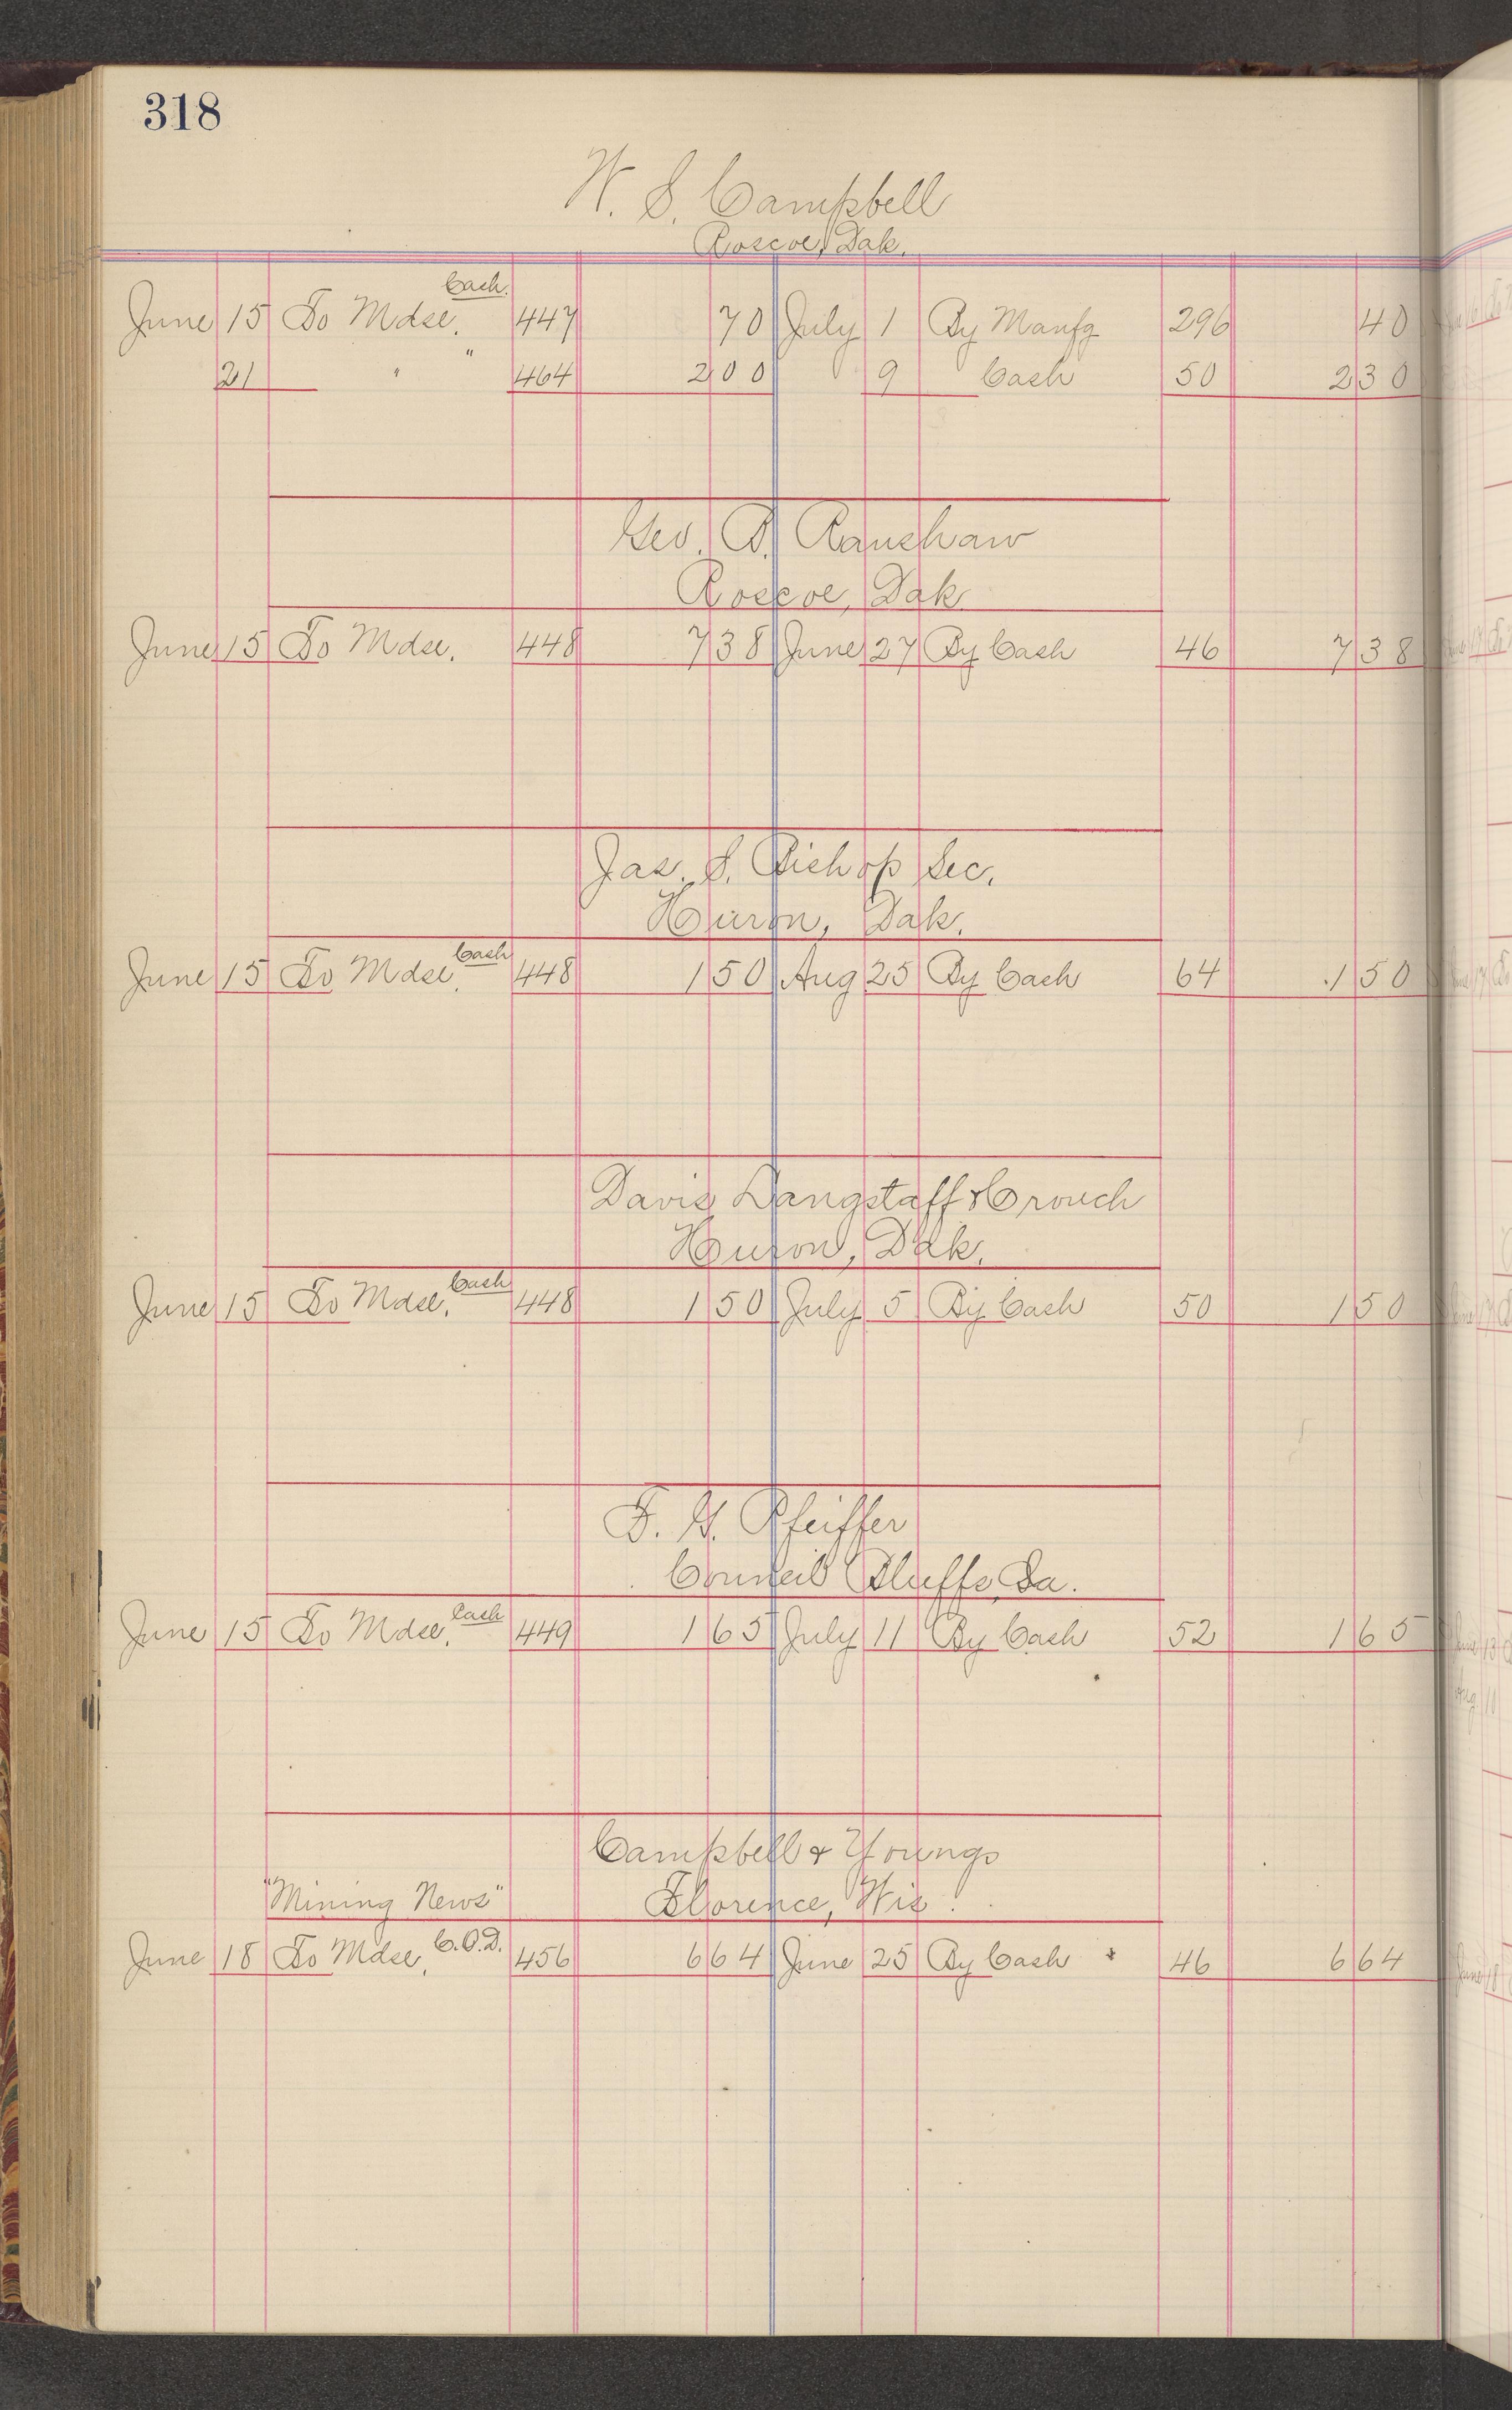 318
W. S. Campbell
Roscoe, Dak.
Cash.
June 15 To Mdse. 447 70 July 1 By Manfg 296 40
21 " " 464 2 00 9 Cash 50 2 30
Geo. B. Ranshaw
Roscoe, Dak
June 15 To Mdse. 448 7 38 June 27 By Cash 46 7 38
Jas. S. Bishop Sec.
Huron, Dak.
June 15 To Mdse. Cash 448 1 50 Aug 25 By Cash 64 1 50
Davis Langstaff & Crouch
Huron, Dak.
June 15 To Mdse. Cash 448 1 50 July 5 By Cash 50 1 50
F. G. Pfeiffer
Council Bluffs, Ia.
June 15 To Mdse. Cash 449 1 65 July 11 By Cash 52 1 65
Campbell & Youngs
"Mining News" Florence, Wis.
June 18 To Mdse. C.O.D. 456 6 64 June 25 By Cash * 46 6 64